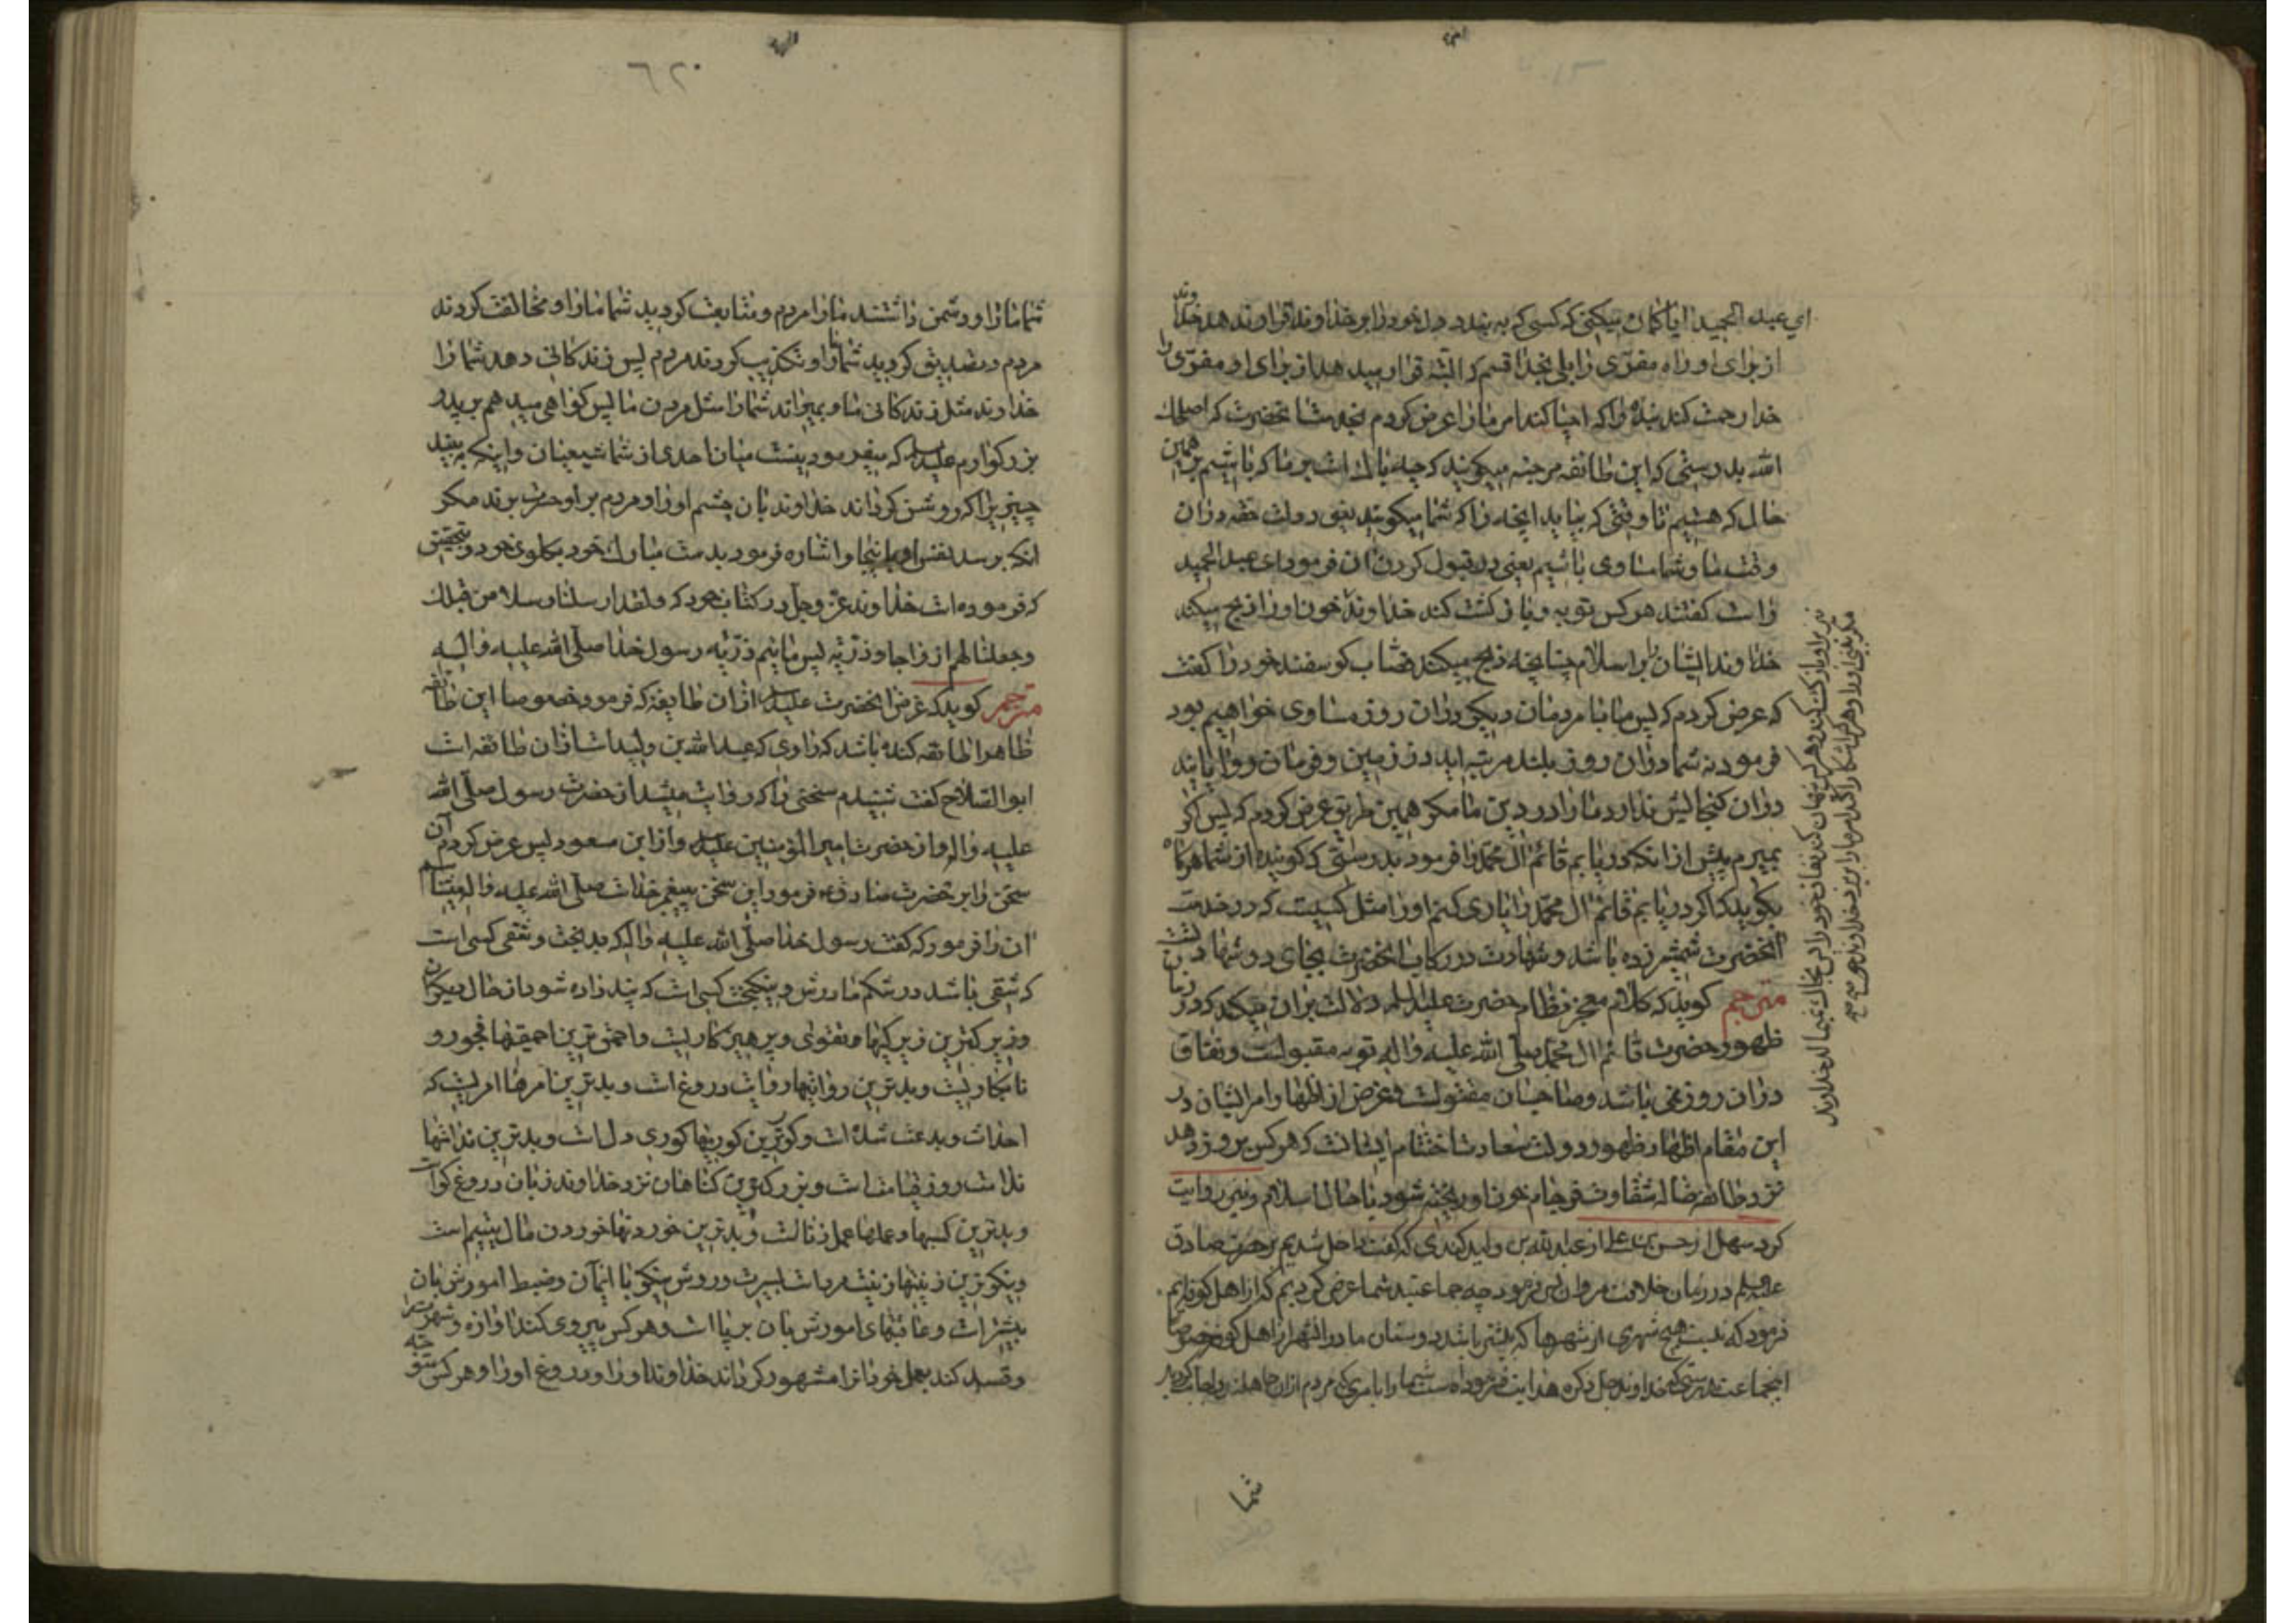 ای عبد الحمید ایا کمان میکنی که کسی که به بندد دل خود را بر خداوند قرار ندهد خداوند
از برای او راه مفرّی را بلی بخدا قسم که البته قرار میدهد از برای او مفرّی را
خدا رحمت کند بندهٔ را که احیا کند امر ما را عرض کردم بخدمت انحضرت که اصلحک
الله بدرستی که این طائفه مرجئه میکویند که چه باک است بر ما که باشیم بر همین
حال که هستیم تا وقتی که بیاید انچه را که شما میکوئید یعنی دولت حقه در ان
وقت ما و شما مساوی باشیم یعنی در قبول کردن ان فرمود ای عبد الحمید
راست کفتند هر کس توبه و باز کشت کند خداوند خون او را ذبح میکند
خداوند ایشان را بر اسلام چنانچه ذبح میکند قصاب کوسفند خود را کفت
که عرض کردم که پس ما با مردمان دیکر در ان روز مساوی خواهیم بود
فرمود نه شما در ان روز بلند مرتبه اید در زمین و فرمان روایانید
در ان کنجایش ندارد ما را در دین ما مکر همین طریق عرض کردم که پس اکر
بمیرم پیش از انکه دریابم قائم ال محمّد را فرمود بدرستی که کوینده از شما هرکاه
بکوید که اکر دریابم قائم ال محمّد را یاری کنم او را مثل کسیست که در خدمت
انحضرت شمشیر زده باشد و شهادت در رکاب انحضرت بجای دو شهادتست
مترجم کوید که کلام معجز نظام حضرت علیه السلم دلالت بر ان میکند که در زمان
ظهور حضرت قائم ال محمّد صلّی الله علیه واله توبه مقبولست و نفاق
در ان روز نمی باشد و صاحبان مقتولست و غرض از اظهار امر ایشان در
این مقام اظهار ظهور دولت سعادت اختتام ایشانست که هر کس بروز دهد
نزد طائفه ضاله شقاوت فرجام خون او ریخته شود تا حال اسلام و نیز روایت
کرد سهل از حسن بن علی از عبد الله بن ولید کندی که کفت داخل شدیم بر حضرت صادق
علیه السلم در زمان خلافت مروان پس فرمود چه جماعتید شما عرض کردیم که از اهل کوفه ایم
فرمود که نیست هیچ شهری از شهرها که بیشتر باشد دوستان ما در انشهر از اهل کوفه خصوصا
اینجماعت بدرستی که خداوند جل ذکره هدایت فرموده است شما را بامری که مردم از ان جاهلند و اجابت کردید
نیز بر او باز کشت کند و هر کس پنهان کند نفاق خود را پس بخاک نمیمالد خداوند
مکر بینی او را و هر که اشکار کند امر ما را بریزد خداوند خون
شما
٦٢٠
شما ما را و دشمن داشتند ما را مردم و متابعت کردید شما ما را و مخالفت کردند
مردم و تصدیق کردید شما ما را و تکذیب کردند مردم پس زندکانی دهد شما را
خداوند مثل زندکانی ما و بمیراند شما را مثل مردن ما پس کواهی میدهم بر پدر
بزرکوارم علیه السلم که میفرمود نیست میان احدی از شما شیعیان و اینکه به بیند
چیزیرا که روشن کرداند خداوند بان چشم او را و مردم بر او حسرت برند مکر
انکه برسد نفس او باینجا و اشاره فرمود بدست مبارک خود بکلوی خود و بتحقیق
که فرموده است خداوند عزّ وجلّ در کتاب خود که ولقد ارسلنا رسلا من قبلک
وجعلنا لهم ازواجا وذرّیّه پس مائیم ذرّیّه رسول خدا صلّی الله علیه واله
مترجم کوید که غرض انحضرت علیه السلم از ان طایفه که فرمود خصوصا این طائفه
ظاهرا طائفه کنده باشد که راوی که عبد الله بن ولید است از ان طائفه است
ابو الصّلاح کفت شنیدم سخنی را که روایت میشد از حضرت رسول صلّی الله
علیه واله و از حضرت امیر المؤمنین علیه السلم و از ابن مسعود پس عرض کردم آن
سخن را بر حضرت صادق ع فرمود این سخن پیغمبر خداست صلّی الله علیه واله میشناسم
ان را فرمود که کفت رسول خدا صلّی الله علیه واله که بدبخت و شقی کسی است
که شقی باشد در شکم مادرش و نیکبخت کسی است که پند داده شود از حال دیکران
و زیرکترین زیرکیها تقوی و پرهیزکاریست و احمق ترین احمقیها فجور و
نابکاریست و بدترین روایتها روایت دروغ است و بدترین امرها امریست که
احداث و بدعت شده است و کورترین کوریها کوری دل است و بدترین ندامتها
ندامت روز قیامت است و بزرکترین کناهان نزد خداوند زبان دروغ کو است
و بدترین کسبها و عملها عمل زنا است و بدترین خوردنها خوردن مال یتیم است
و نیکوترین زینتها زینت مرد است سیرت و روش نیکو با ایمان و ضبط امورش بان
بیشتر است و عاقبتهای امورش بان بر پا است و هر کس پیروی کند اوازه و شهرت را
و قصد کند بعمل خود انرا مشهور کرداند خداوند او را و دروغ او را و هر کس متوجه